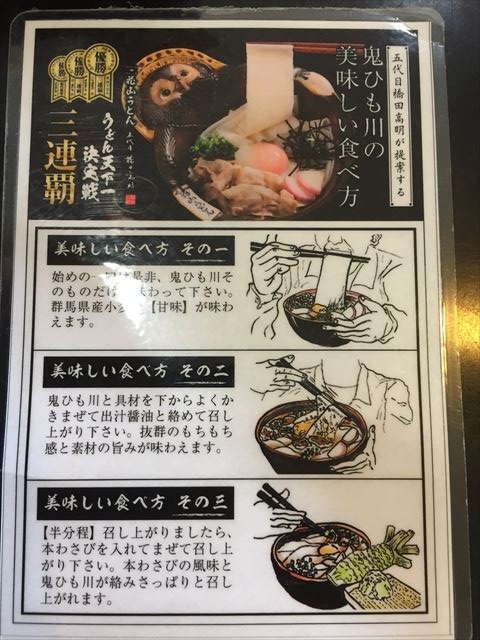 五代目橋田高明が提案する
鬼ひも川の
美味しい食べ方
優勝
優勝
優勝
花山うどん
うどん天下一
決定戦
三連覇
美味しい食べ方 その一
始めの一口は是非、鬼ひも川そ
のものだけ 味わって下さい。
群馬県産小 【甘味】が味わ
えます。
美味しい食べ方 その二
鬼ひも川と具材を下からよくか
きまぜて出汁醤油と絡めて召し
上がり下さい。抜群のもちもち
感と素材の旨みが味わえます。
美味しい食べ方 その三
【半分程】召し上がりましたら、
本わさびを入れてまぜて召し上
がり下さい。本わさびの風味と
鬼ひも川が絡みさっぱりと召し
上がれます。